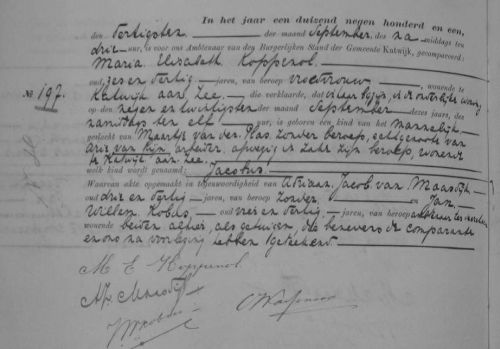 In het jaar een duizend negen honderd en een,
den dertigsten der maand September des na middags ten
drie uur, is voor ons Ambtenaar van den Burgerlijken Stand der Gemeente Katwijk, gecompareerd:
Maria Elizabeth Koppenol
No. 197. oud zes en dertig jaren, van beroep vroedvrouw, wonende te
Katwijk aan Zee. die verklaarde, dat
op den negen en twintigsten der maand September dezes jaars, des
namiddags ten elf uur, is geboren een kind van het mannelijk
geslacht van Maartje van der Plas zonder beroep, echtgenoote van
Arie van Rijn, arbeider, afwezig in zake zijn beroep, wonende
te Katwijk aan Zee.
welk kind wordt genaamd: Jacobus.
Waarvan akte opgemaakt in tegenwoordigheid van Adriaan Jacob van Maasdijk
oud drie en dertig jaren, van beroep zonder, Jan
Willem oud drie en dertig jaren, van beroep
wonende beiden alhier, als getuigen, die benevens de comparante
en ons na voorlezing hebben geteekend
M. E. Koppenol